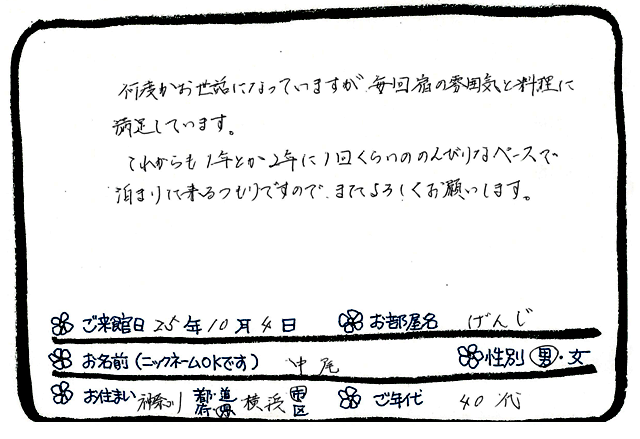 何度かお世話になっていますが、毎回宿の雰囲気と料理に
満足しています。
これからも1年とか2年に1回くらいののんびりなペースで
泊まりに来るつもりですので、またよろしくお願いします。
ご来館日 25年10月4日 お部屋名 げんじ
お名前(ニックネームOKです) 中尾 性別 男・女
お住まい 神奈川 都・道府・県 横浜 市区 ご年代 40代